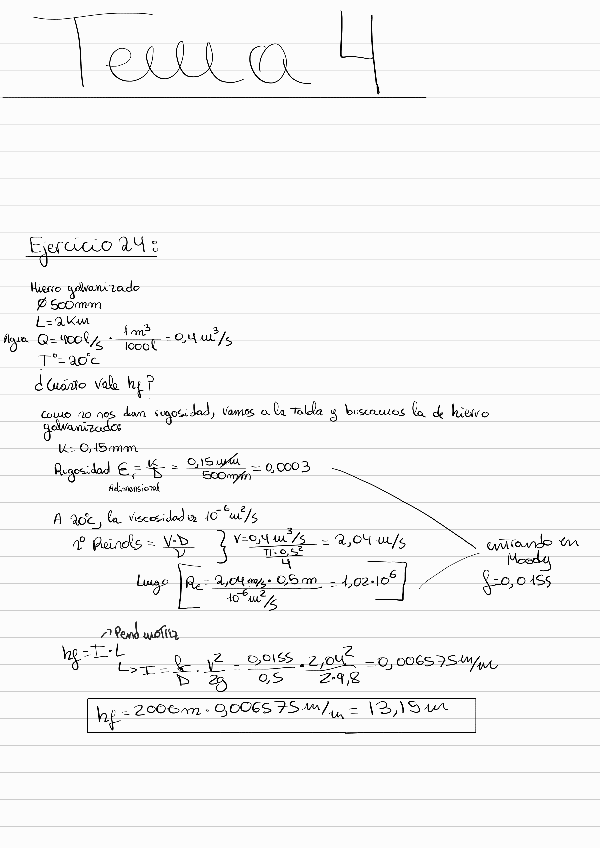 Tema 4
Ejercicio 24:
Hierro galvanizado
Ø 500mm
L=2Km
Agua Q=400l/s · 1m³/1000l = 0,4 m³/s
Tº=20ºc
¿Cuánto vale hf?
como no nos dan rugosidad, vamos a la tabla y buscamos la de hierro
galvanizado
K=0,15mm
Rugosidad εr = K/D = 0,15mm/500mm = 0,0003
Adimensional
A 20ºc, la viscosidad es 10⁻⁶ m²/s
nº Reinols = V·D/ν } V=0,4 m³/s / (π·0,5²/4) = 2,04 m/s
Luego [Re = 2,04 m/s · 0,5 m / 10⁻⁶ m²/s = 1,02·10⁶]
entrando en
Moody
f=0,0155
→ Pend motriz
hf = I·L
↳ I = f/D · V²/2g = 0,0155/0,5 · 2,04²/2·9,8 = 0,006575 m/m
hf = 2000m · 0,006575 m/m = 13,15 m